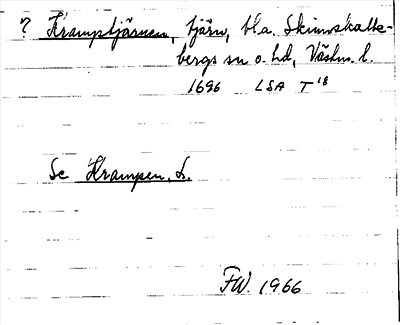 ? Kramptjärnen, tjärn, bl.a. Skinnskatte-
bergs sn o. hd, Västm. l.
1696 LSA T 18
Se Krampen, s.
FW. 1966